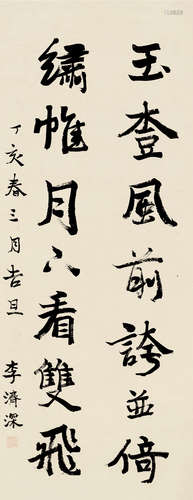 玉壺風前誇並倚
繡帷月下看雙飛
丁亥春三月吉旦
李濟深